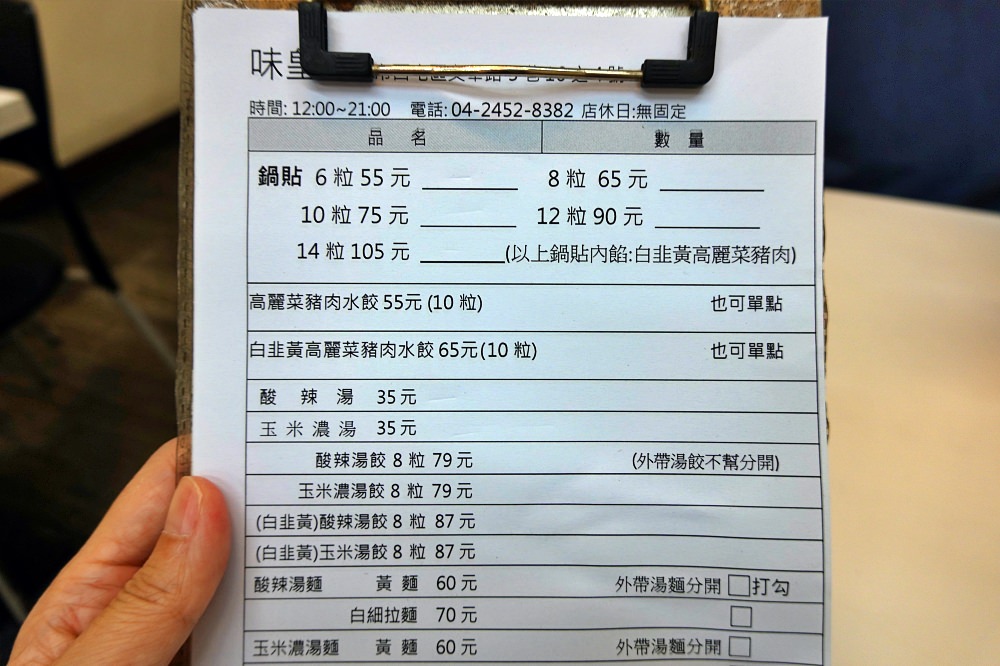 味皇
時間: 12:00~21:00 電話: 04-2452-8382 店休日:無固定
品 名 數 量
鍋貼 6 粒 55 元 ________ 8 粒 65 元 ________
10 粒 75 元 ________ 12 粒 90 元 ________
14 粒 105 元 ________(以上鍋貼內餡:白韭黃高麗菜豬肉)
高麗菜豬肉水餃 55元 (10 粒) 也可單點
白韭黃高麗菜豬肉水餃 65元(10 粒) 也可單點
酸 辣 湯 35 元
玉 米 濃 湯 35 元
酸辣湯餃 8 粒 79 元 (外帶湯餃不幫分開)
玉米濃湯餃 8 粒 79 元
(白韭黃)酸辣湯餃 8 粒 87 元
(白韭黃)玉米湯餃 8 粒 87 元
酸辣湯麵 黃 麵 60 元 外帶湯麵分開 □打勾
白細拉麵 70 元 □
玉米濃湯麵 黃 麵 60 元 外帶湯麵分開 □